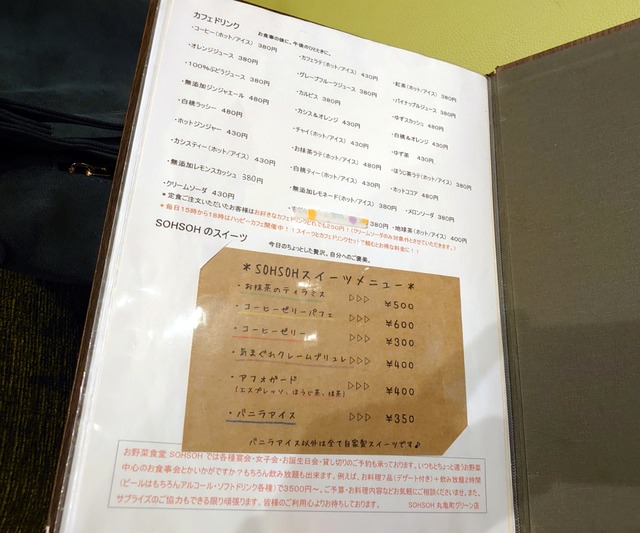 カフェドリンク
お食事の後に。午後のひとときに。
・コーヒー(ホット/アイス) 380円 ・カフェラテ(ホット/アイス) 430円 ・紅茶(ホット/アイス) 380円
・オレンジジュース 380円 ・グレープフルーツジュース 380円 ・パイナップルジュース 380円
・100%ぶどうジュース 380円 ・カルピス 380円 ・ゆずスカッシュ 480円
・無添加ジンジャエール 480円 ・カシス&オレンジ 430円 ・白桃&オレンジ 430円
・白桃ラッシー 480円 ・チャイ(ホット/アイス) 430円 ・ゆず茶 430円
・ホットジンジャー 430円 ・お抹茶ラテ(ホット/アイス) 480円 ・ほうじ茶ラテ(ホット/アイス) 380円
・カシスティー(ホット/アイス) 430円 ・白桃ティー(ホット/アイス) 430円 ・ホットココア 480円
・無添加レモンスカッシュ 380円 ・無添加レモネード(ホット/アイス) 380円 ・メロンソーダ 380円
・クリームソーダ 430円 380円 ・地球茶(ホット/アイス) 400円
* 定食ご注文いただいたお客様はお好きなカフェドリンクどれでも250円!(クリームソーダのみ対象外とさせていただきます。)
* 毎日15時から18時はハッピーカフェ開催中!!スイーツとカフェドリンクセットで頼むとお得な料金に!!
SOHSOH のスイーツ
今日のちょっとした贅沢。自分へのご褒美。
* SOHSOHスイーツメニュー *
・お抹茶のティラミス ▷▷▷ ¥500
・コーヒーゼリーパフェ ▷▷▷ ¥600
・コーヒーゼリー ▷▷▷ ¥300
・気まぐれクレームブリュレ ▷▷▷ ¥400
・アフォガード ▷▷▷ ¥400
(エスプレッソ、ほうじ茶、抹茶)
・バニラアイス ▷▷▷ ¥350
バニラアイス以外は全て自家製スイーツです♪
お野菜食堂 SOHSOH では各種宴会・女子会・お誕生日会・貸し切りのご予約も承っております。いつもとちょっと違うお野菜
中心のお食事会とかいかがですか?もちろん飲み放題も出来ます。例えば、お料理7品(デザート付き)+飲み放題2時間
(ビールはもちろんアルコール・ソフトドリンク各種)で3500円~、ご予算・お料理内容などお気軽にご相談くださいませ。また、
サプライズのご協力もできる限り頑張ります。皆様のご利用心よりお待ちしております。 SOHSOH 丸亀町グリーン店